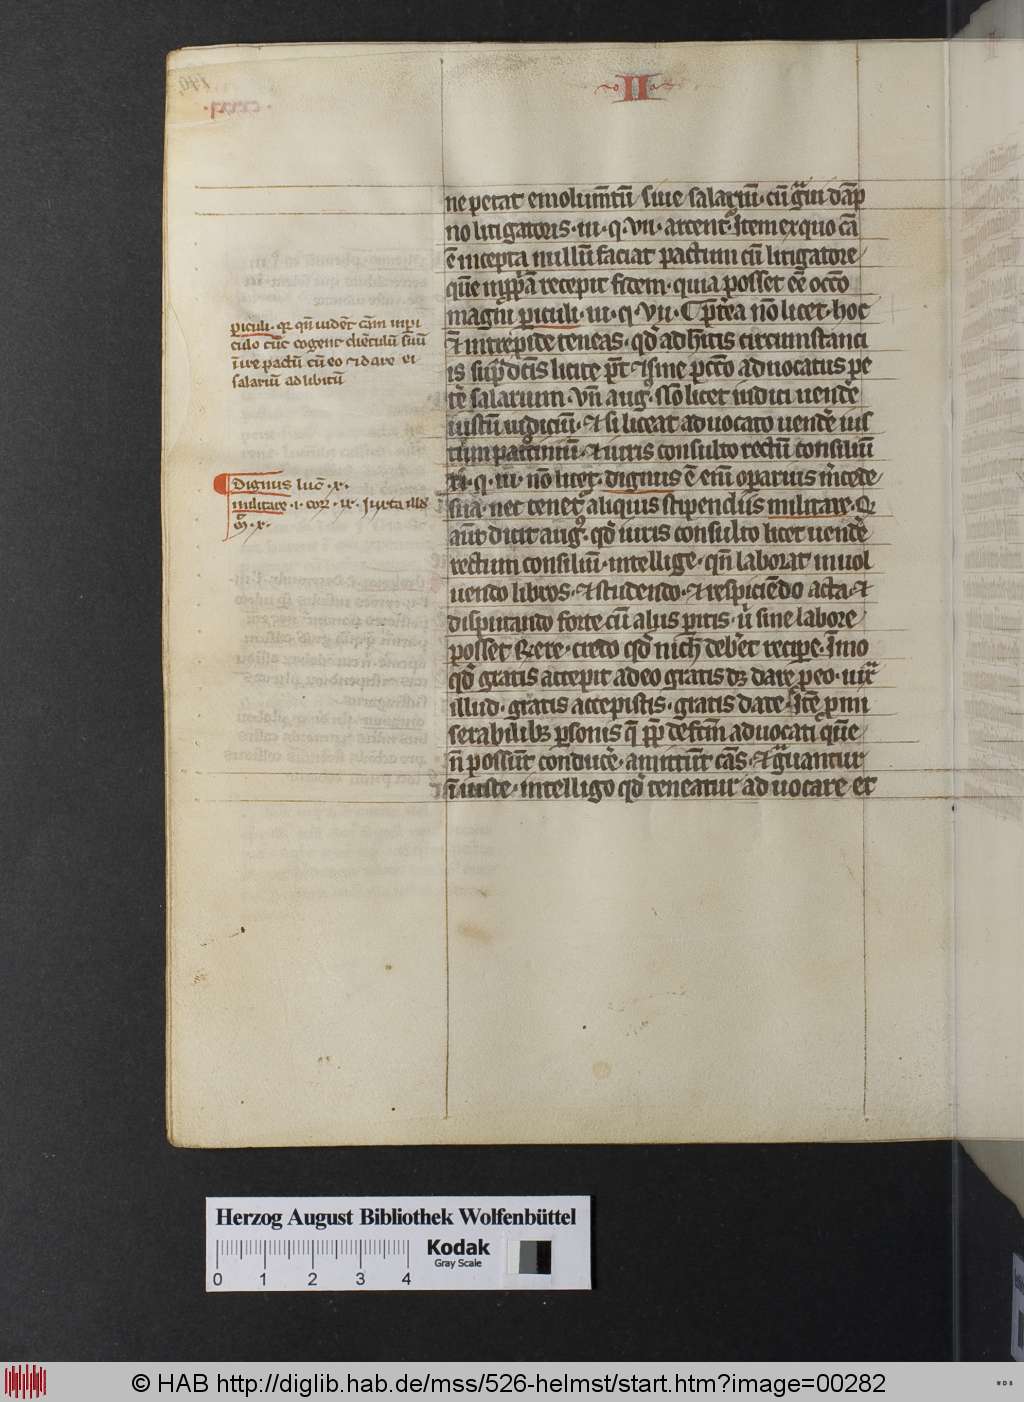 II
ne petat emolumẽtũ siue salariũ · cũ gͣui dãp
no litigatoris · iii · q̃ · vii · arcent᷑ · Item ex quo cã
ẽ incepta nullũ faciat pactum cũ litigatore
quẽ in ꝓpͥa recepit fidem · quia posset eẽ occõ
magni ꝑiculi · iii · q̃ · vii · Ꝓͤtea nõ licet · hoc
⁊ intrepide teneas · qd̃ adhitis circumstanci
is sup̃dc̃is licite põt ⁊ sine pccõ aduocatus pe
te᷑ salarium · vñ aug᷑ · nõ licet iudici uende᷑
iustũ iudiciũ · ⁊ si liceat aduocato uende᷑ ius
tum patrciniũ · ⁊ iuris consulto rectũ consiliũ
xi · q̃ · iii · nõ licet · dignus ẽ eni᷑ oꝑarius m᷑cede
sua · nec tenet᷑ aliquis stipendiis militare · Q
aũt dicit aug᷑ · qd̃ iuris consulto licet uende᷑
rectum consiliũ · intellige · qñ laborat in uol
uendo libros · ⁊ studendo · ⁊ respiciẽdo acta · ⁊
disputando forte cũ aliis ꝑitis · u᷑ sine labore
posset rñde᷑e · credo qd̃ nich̃ deb᷑et recipe᷑ · Imo
qd̃ gratis accepit a deo gratis dꝫ dare ꝓ eo · iux͛
illud · gratis accepistis · gratis date · Itẽ ꝓ mi
serabilibꝫ ꝑsonis q̃ ꝓp̃ defc̃m aduocati quẽ
ñ possũt conduce᷑ · amittũt cãs · ⁊ gͣuantur
iniuste · intelligo qd̃ teneatur aduocare et
ꝑiculi · qꝛ qñ uidet᷑ cãm in ꝑi
culo tũc cogeret᷑ cliẽtulũ suũ
inire pactũ cũ eo ⁊ dare ei
salariũ ad libitũ
Dignus luc̃ · x ·
militare · i · cor᷑ · ix · Iuxta illd̃
m̃ · x ·
Herzog August Bibliothek Wolfenbüttel
Kodak
Gray Scale
0 1 2 3 4
© HAB http://diglib.hab.de/mss/526-helmst/start.htm?image=00282